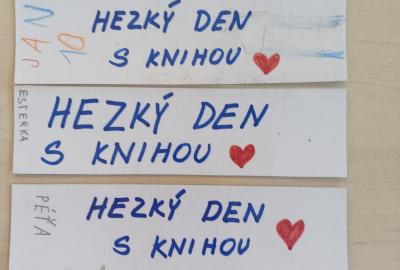 JAN
10
HEZKÝ DEN
S KNIHOU
ESTERKA
HEZKÝ DEN
S KNIHOU
PÉŤA
HEZKÝ DEN
S KNIHOU